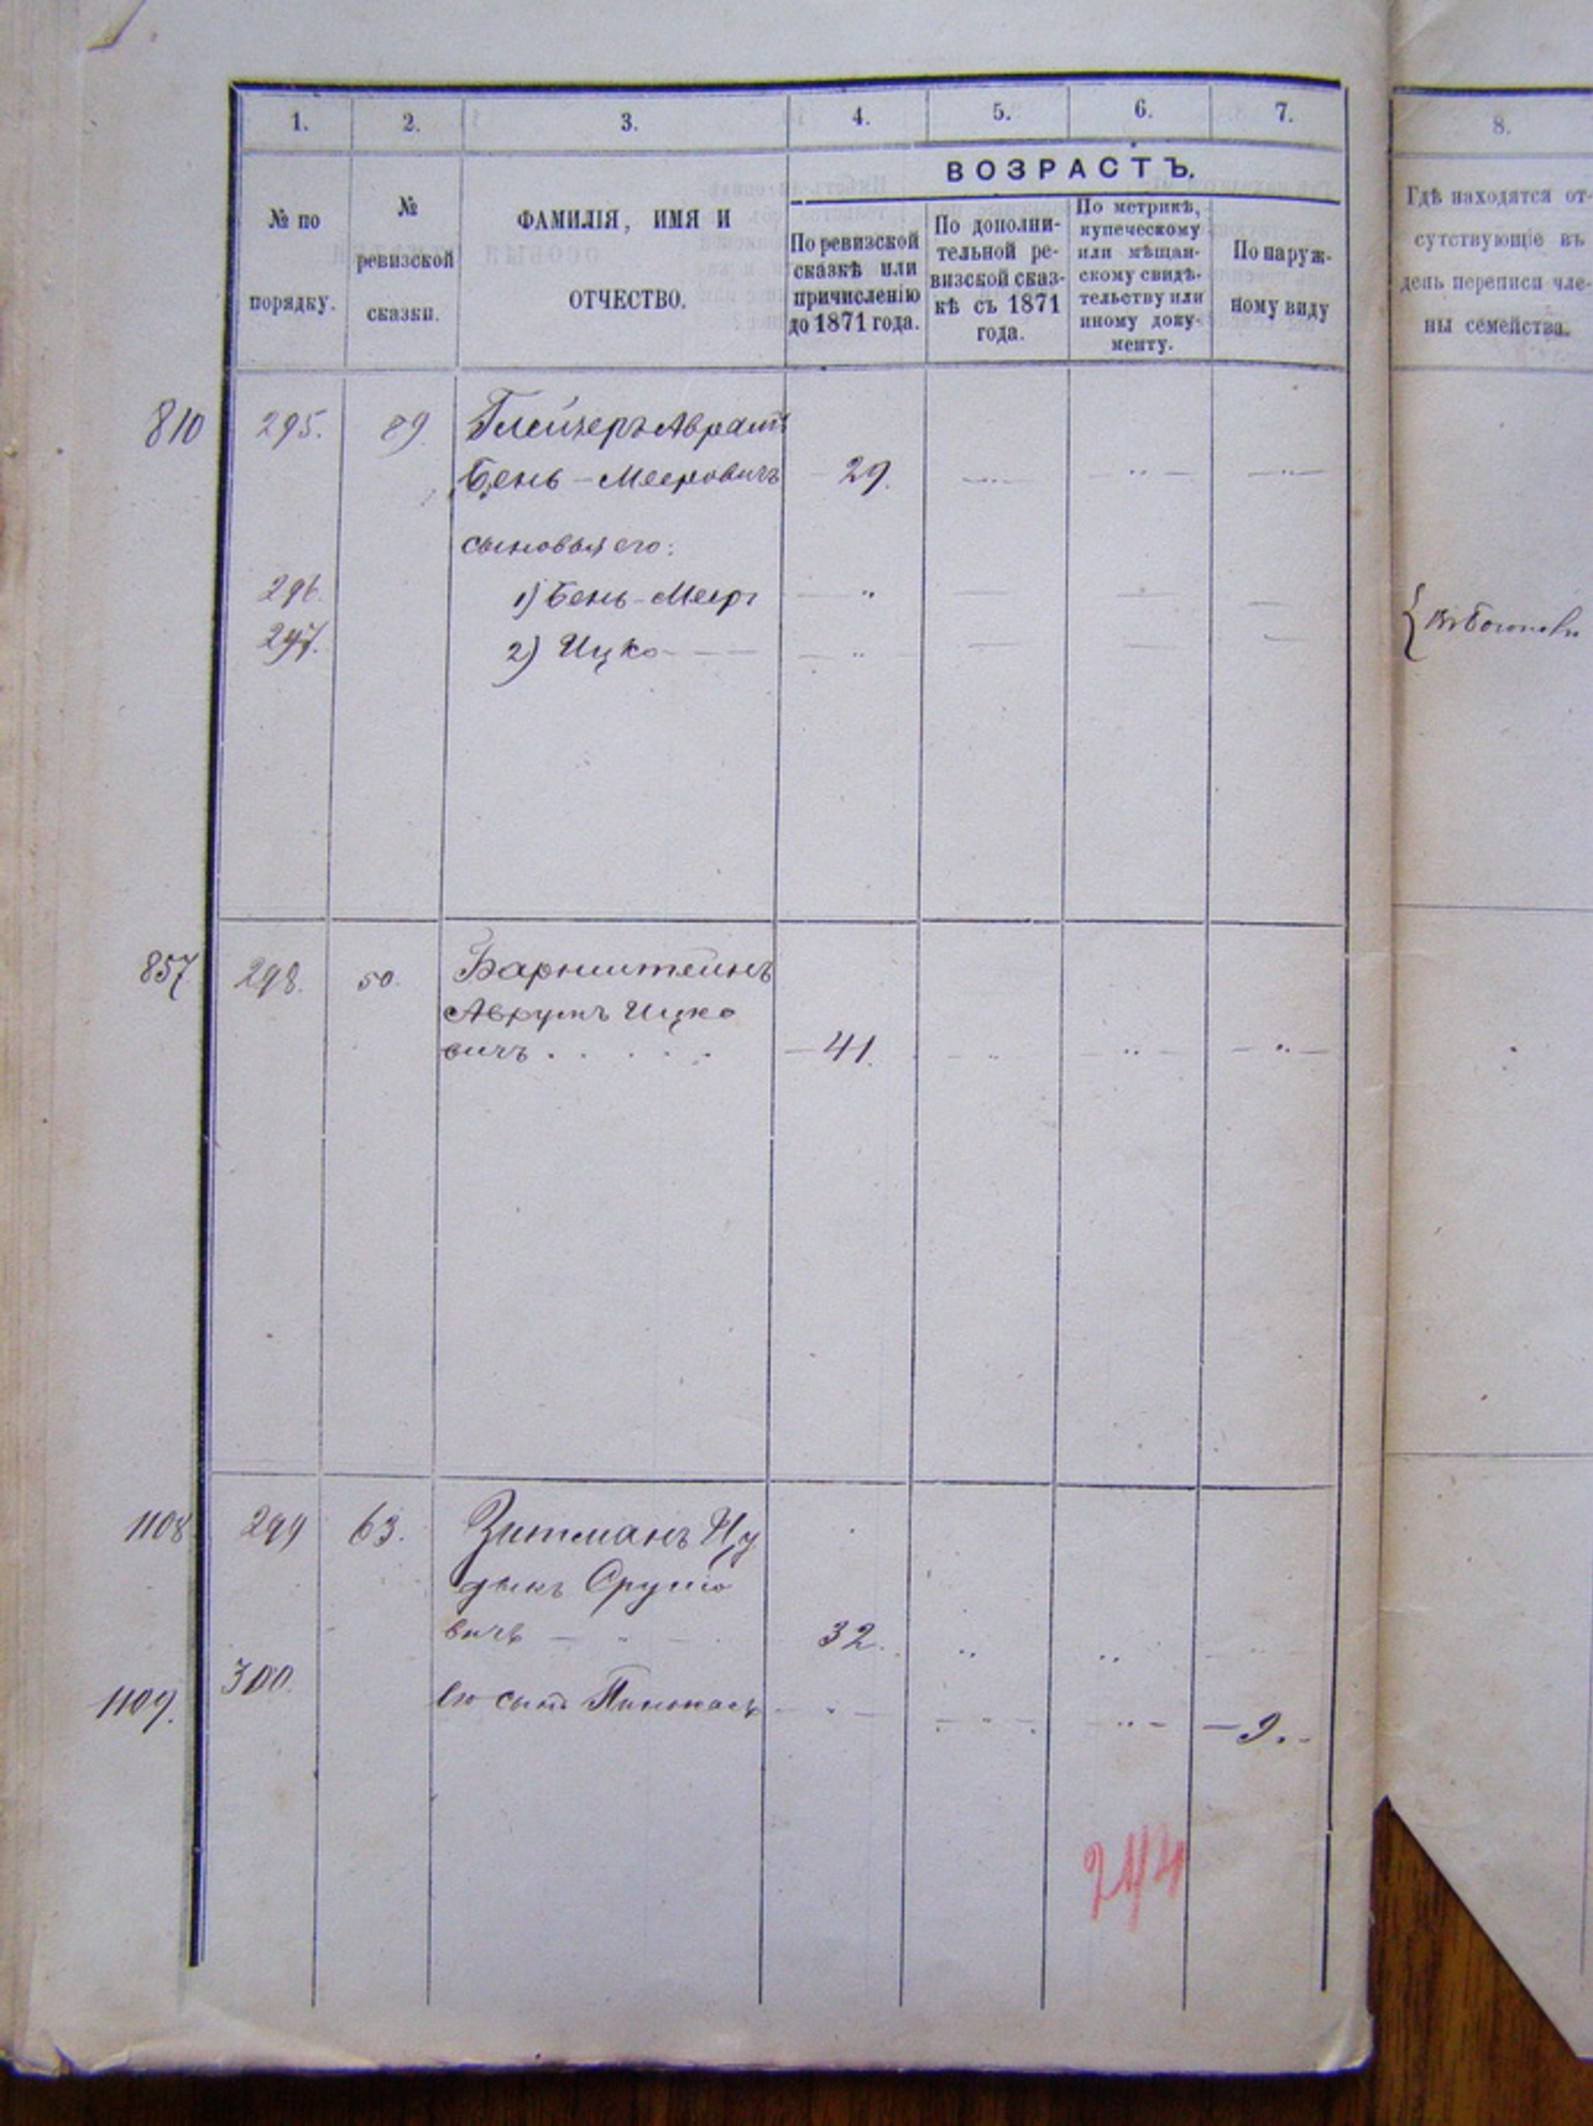 1. 2. 3. 4. 5. 6. 7. 8.
№ по порядку.
№ ревизской сказки.
ФАМИЛІЯ, ИМЯ И
ОТЧЕСТВО.
ВОЗРАСТЪ.
По ревизской
сказкѣ или
причисленію
до 1871 года.
По дополни-
тельной ре-
визской сказ-
кѣ съ 1871
года.
По метрикѣ,
купеческому
или мѣщан-
скому свидѣ-
тельству или
иному доку-
менту.
По наруж-
ному виду
Гдѣ находятся от-
сутствующіе въ
день переписи чле-
ны семейства.
810 295. 89. Глейзеръ Аврамъ
Бень-Мееровичъ 29.
сыновья его:
296. 1) Бень-Мееръ
297. 2) Ицко
857 298. 50. Барнштейнъ
Аврумъ Ицко
вичъ 41.
1108 299 63. Зитманъ Цу
дыкъ Сруло
вичъ 32.
1109. 300. Его сынъ Пинхасъ 9.
244